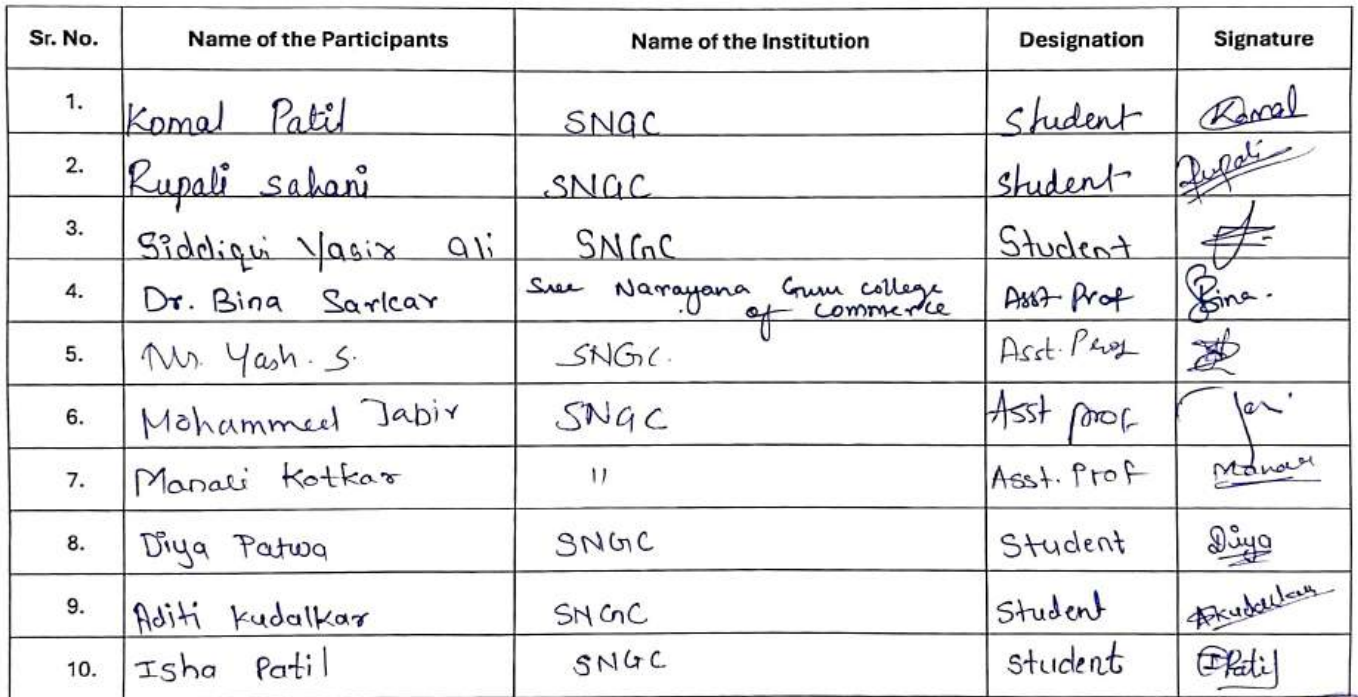 Sr. No. Name of the Participants Name of the Institution Designation Signature
1. Komal Patil SNGC Student Komal
2. Rupali Sahani SNGC Student Rupali
3. Siddiqui Yasir Ali SNGC Student
4. Dr. Bina Sarkar Sree Narayana Guru college of commerce Asst Prof Bina.
5. Mr. Yash. S. SNGC. Asst. Prof
6. Mohammed Jabir SNGC Asst prof
7. Manali Kotkar 11 Asst. Prof
8. Diya Patwa SNGC Student Diya
9. Aditi Kudalkar SNGC Student AKudalkar
10. Isha Patil SNGC Student IPatil